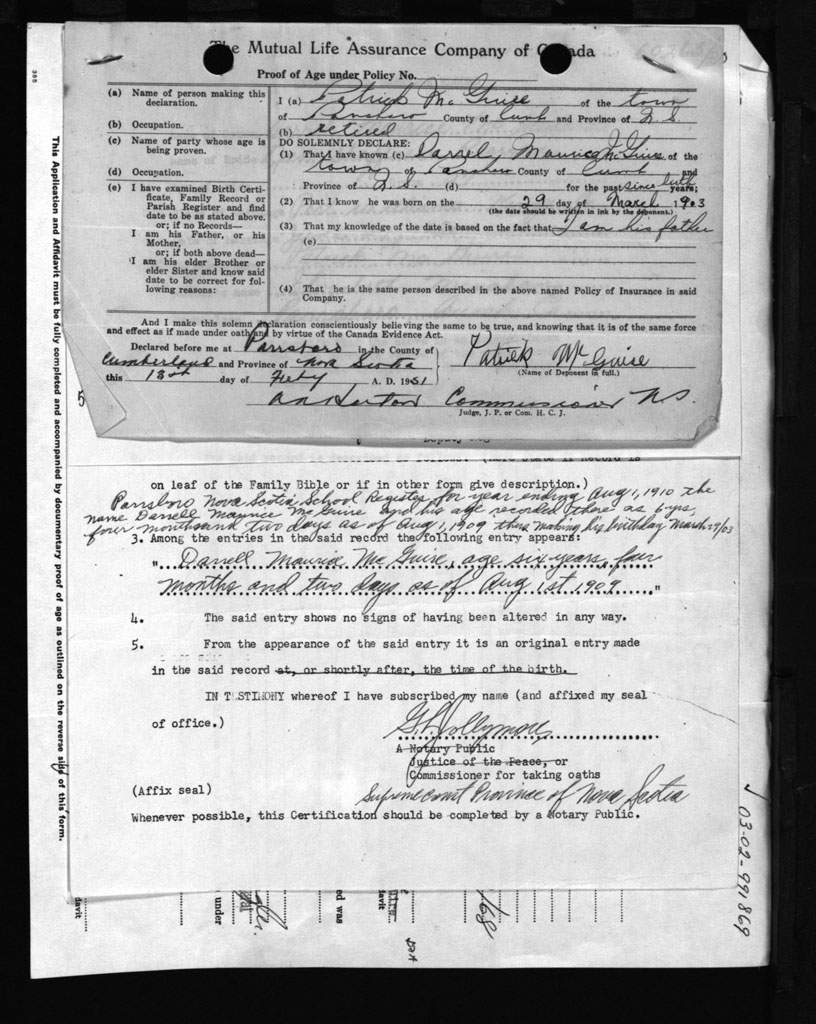 The Mutual Life Assurance Company of Canada
Proof of Age under Policy No.
(a) Name of person making this declaration.
(b) Occupation.
(c) Name of party whose age is being proven.
(d) Occupation.
(e) I have examined Birth Certificate, Family Record or Parish Register and find date to be as stated above.
or; if no Records—
I am his Father, or his Mother,
or; if both above dead—
I am his elder Brother or elder Sister and know said date to be correct for following reasons:
I (a) Patrick McGuire of the town
of Parrsboro County of Cumb and Province of N.S.
(b) retired
DO SOLEMNLY DECLARE:
(1) That I have known (c) Darrel Maurice McGuire of the
town of Parrsboro County of Cumb and
Province of N.S. (d) for the past since birth years;
(2) That I know he was born on the 29 day of March 1903
(the date should be written in ink by the deponent.)
(3) That my knowledge of the date is based on the fact that I am his father
(e)
(4) That he is the same person described in the above named Policy of Insurance in said
Company.
And I make this solemn declaration conscientiously believing the same to be true, and knowing that it is of the same force
and effect as if made under oath and by virtue of the Canada Evidence Act.
Declared before me at Parrsboro in the County of
Cumberland and Province of Nova Scotia
this day of A. D. 1951
Patrick McGuire
(Name of Deponent in full.)
Commissioner N.S.
Judge, J. P. or Com. H. C. J.
on leaf of the Family Bible or if in other form give description.)
Parrsboro Nova Scotia School Register for year ending Aug 1, 1910 the
name Darrell Maurice McGuire and his age recorded there as 6 yrs,
four months and two days as of Aug 1, 1909 thus making his birthday March 29/03
3. Among the entries in the said record the following entry appears:
"Darrell Maurice McGuire, age six years, four
months and two days as of Aug 1st 1909"
4. The said entry shows no signs of having been altered in any way.
5. From the appearance of the said entry it is an original entry made
in the said record at, or shortly after, the time of the birth.
IN TESTIMONY whereof I have subscribed my name (and affixed my seal
of office.)
A Notary Public
Justice of the Peace, or
Commissioner for taking oaths
(Affix seal)
Supreme court Province of Nova Scotia
Whenever possible, this Certification should be completed by a Notary Public.
This Application and Affidavit must be fully completed and accompanied by documentary proof of age as outlined on the reverse side of this form.
03-02-991869
davit
under
ed was
davit